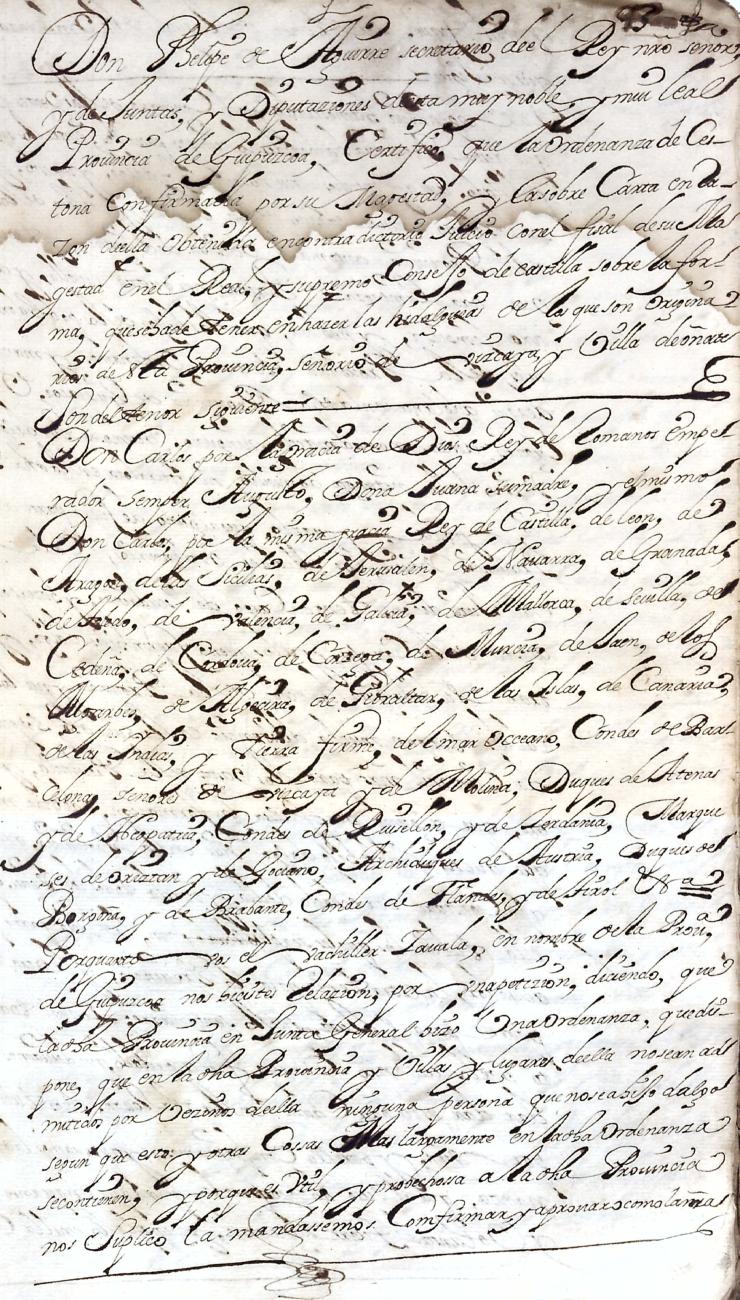 93
Don Phelipe de Aguirre secretario deel Rey nrō señor,
y de Juntas, y Diputaziones desta muy noble, y muy leal
Prouincia de Guipuzcoa, Certifico, que la Ordenanza de Ces-
tona Confirmada por su Magestad, y la sobre Carta en Ra-
zon della obtenida encontradictorio Juicio con el fiscal de su Ma
gestad en el Real, y supremo Conseſſo de Castilla sobre la for-
ma, que se ha de tener en hazer las hidalguias de los que son Origina
rios de esta Prouincia, señorio de Vizcaya, y Villa de oñate
son del tenor siguiente
Don Carlos por la gracia de Dios Rey de Romanos empe-
rador semper Augusto, Doña Juana su madre, y el mismo
Don Carlos por la misma gracia Rey de Castilla, de leon, de
Aragon, de las Sicilias, de Jerusalen, de Nauarra, de Granada,
de Toledo, de Valencia, de Galicia, de Mallorca, de Seuilla, de
Cerdeña, de Cordoua, de Corcega, de Murcia, de Jaen, de los
Algarbes, de Algecira, de Gibraltar, de las Islas, de Canaria,
de las Indias, y Tierra firme, del mar occeano, Condes de Bar-
celona, señores de Vizcaya y de Molina, Duques de Atenas
y de Neopatria, Condes de Ruisellon, y de Cerdania, Marque
ses de oriztan y de Gociano, Archiduques de Austria, Duques de
Borgoña, y de Brabante, Condes de Flandes, y de Tirol &ª
Por quanto vos el vachiller Zauala, en nombre de la Prouª
de Guipuzcoa nos hicistes relazion, por vna petizion, diziendo, que
la dha Prouincia en Junta General hizo Una Ordenanza, que dis-
pone, que en la dha Prouincia y Villas y lugares deella no sean ad
mitidos por Vezinos deella ninguna persona que no sea hijo dalgo
segun que esto y otras Cossas Mas largamente en la dha Ordenanza
se contienen, y porque es Vtil, y probechossa a la dha Prouincia
nos Suplico la mandassemos Comfirmar, y aprouar o como la nrā